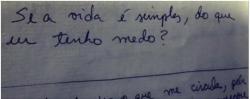 Se a vida é simples, do que
eu tenho medo?
que me circula, pois